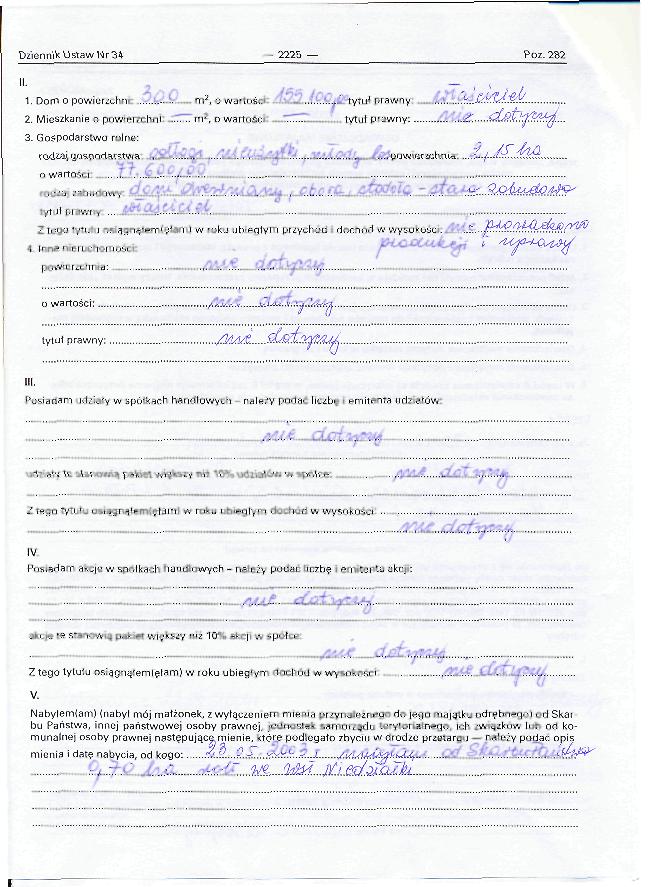 Dziennik Ustaw Nr 34 — 2225 — Poz. 282
II.
1. Dom o powierzchni: 300 m², o wartości: 155 100,0 tytuł prawny: właściciel
2. Mieszkanie o powierzchni: — m², o wartości: — tytuł prawny: nie dotyczy
3. Gospodarstwo rolne:
rodzaj gospodarstwa: odłogi, nieużytki, młody las powierzchnia: 2,15 ha
o wartości: 77.600,00
rodzaj zabudowy: dom drewniany, obora, stodoła - stara zabudowa
tytuł prawny: właściciel
Z tego tytułu osiągnąłem(ęłam) w roku ubiegłym przychód i dochód w wysokości: nie prowadzono
produkcji i uprawy
4. Inne nieruchomości:
powierzchnia: nie dotyczy
o wartości: nie dotyczy
tytuł prawny: nie dotyczy
III.
Posiadam udziały w spółkach handlowych – należy podać liczbę i emitenta udziałów:
nie dotyczy
udziały te stanowią pakiet większy niż 10% udziałów w spółce: nie dotyczy
Z tego tytułu osiągnąłem(ęłam) w roku ubiegłym dochód w wysokości:
nie dotyczy
IV.
Posiadam akcje w spółkach handlowych – należy podać liczbę i emitenta akcji:
nie dotyczy
akcje te stanowią pakiet większy niż 10% akcji w spółce:
nie dotyczy
Z tego tytułu osiągnąłem(ęłam) w roku ubiegłym dochód w wysokości: nie dotyczy
V.
Nabyłem(am) (nabył mój małżonek, z wyłączeniem mienia przynależnego do jego majątku odrębnego) od Skar-
bu Państwa, innej państwowej osoby prawnej, jednostek samorządu terytorialnego, ich związków lub od ko-
munalnej osoby prawnej następujące mienie, które podlegało zbyciu w drodze przetargu — należy podać opis
mienia i datę nabycia, od kogo: 23.05.2003 r nabyłam od Skarbu Państwa
0,70 ha we wsi Niedziałki